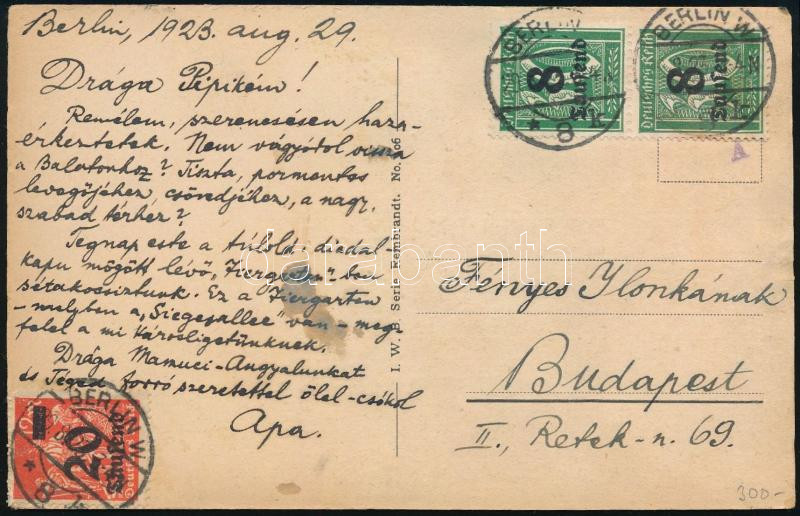 Berlin, 1923. aug. 29.
Drága Pipikém!
Remélem, szerencsésen haza-
érkeztetek. Nem vágyódol vissza
a Balatonhoz? Tiszta, pormentes
levegőjéhez, csöndjéhez, a nagy,
szabad térhez?
Tegnap este a túlold. diadal-
kapu mögött lévő "Tiergarten"-ben
sétakocsiztunk. Ez a Tiergarten
- melyben a "Siegesallee" van - meg-
felel a mi Városligetünknek.
Drága Mamuci-Angyalunkat
és Téged forró szeretettel ölel-csókol
Apa.
I. W. B. Serie Rembrandt. No.
BERLIN W
BERLIN W
Deutsches Reich
8 Tausend
8 Tausend
* 8
A
Fényes Ilonkának
Budapest
II., Retek-u. 69.
300-
BERLIN W
20 Tausend
* 8
darabanth